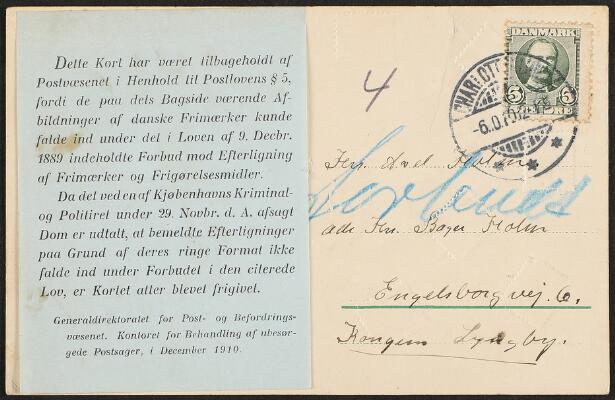 Dette Kort har været tilbageholdt af
Postvæsenet i Henhold til Postlovens § 5,
fordi de paa dets Bagside værende Af-
bildninger af danske Frimærker kunde
falde ind under det i Loven af 9. Decbr.
1889 indeholdte Forbud mod Efterligning
af Frimærker og Frigørelsesmidler.
Da det ved en af Kjøbenhavns Kriminal-
og Politiret under 29. Novbr. d. A. afsagt
Dom er udtalt, at bemeldte Efterligninger
paa Grund af deres ringe Format ikke
falde ind under Forbudet i den citerede
Lov, er Kortet atter blevet frigivet.
Generaldirektoratet for Post- og Befordrings-
væsenet. Kontoret for Behandling af ubesør-
gede Postsager, i December 1910.
4
DANMARK
5 5
ØRE
Hr. Axel Holm
adr. Hr. Bager Holm
Engelsborgvej 6.
Kongens Lyngby.